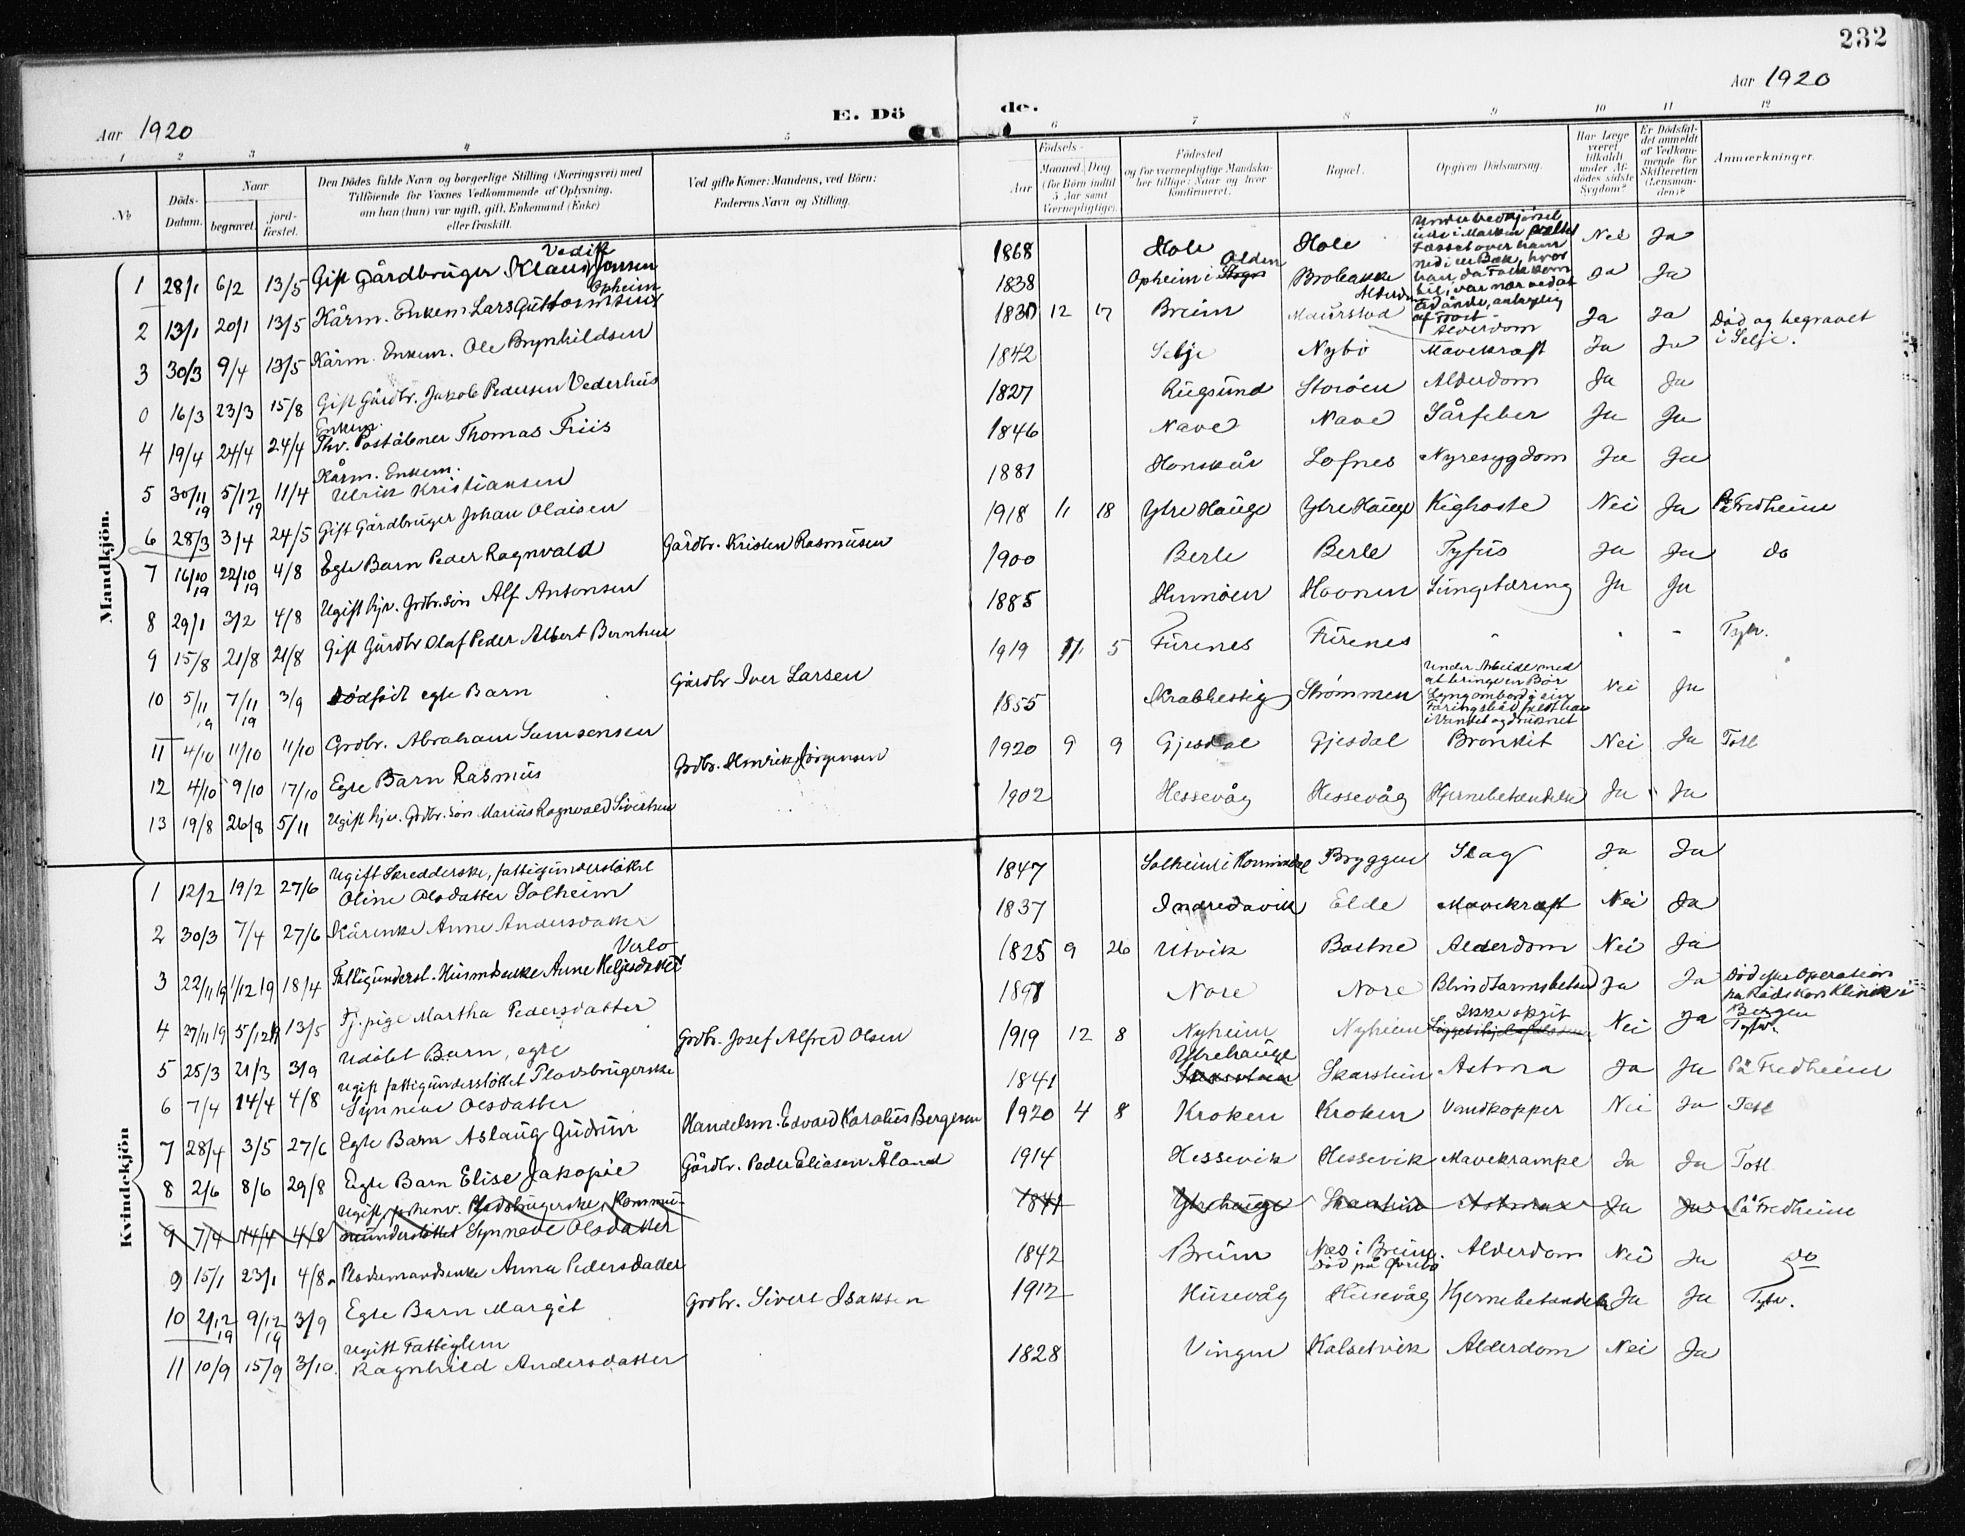 232
Aar 1920
Aar 1920
E. Döde.
1 2 3 4 5 6 7 8 9 10 11 12
No
Döds-Datum.
Naar
begravet.
jord-fæstet.
Den Dödes fulde Navn og borgerlige Stilling (Næringsvei) med
Tilföiende for Voxnes Vedkommende af Oplysning,
om han (hun) var ugift, gift, Enkemand (Enke)
eller fraskilt.
Ved gifte Koner: Mandens, ved Börn:
Faderens Navn og Stilling.
Födsels-
Aar
Maaned Dag
(for Börn indtil 5 Aar samt Værnepligtige).
Födested
og for værnepligtige Mandskaber tillige: Naar og hvor konfirmeret.
Bopæl.
Opgiven Dödsaarsag.
Har Læge været tilkaldt under Afdödes sidste Sygdom?
Er Dödsfaldet anmeldt af Vedkommende for Skifteretten (Lensmanden)?
Anmærkninger.
Mandkjön.
1 28/1 6/2 13/5 Gift Gårdbruger Klaus Jensen 1868 Hole Hole Nei Ja
2 13/1 20/1 13/5 Kårm. Enkem. Lars Guttormsen Opheim 1838 Opheim i Olden Brobakke Alderdom Ja Ja
3 30/3 9/4 13/5 Kårm. Enkem. Ole Brynhildsen 1830 12 17 Breim Maurstad Alderdom Ja Ja
0 16/3 23/3 15/8 Gift Gårdbr. Jakob Pedersen Vederhus 1842 Selje Nybø Mavekræft Ja Ja Död og begravet i Selje.
4 19/4 24/4 24/4 Enkem. Fhv. Poståbner Thomas Friis 1827 Rugsund Storöen Alderdom Ja Ja
5 30/11 19 5/12 19 11/4 Kårm. Enkem. Ulrik Kristiansen 1846 Nave Nave Sårfeber Ja Ja
6 28/3 3/4 24/5 Gift Gårdbruger Johan Olaisen 1881 Honskår Lofnes Nyresygdom Ja Ja
7 16/10 19 22/10 19 4/8 Egte Barn Peder Ragnvald Gårdbr. Kristen Rasmusen 1918 11 18 Ytre Hauge Ytre Hauge Kighoste Nei Ja På Fredheim
8 29/1 3/2 4/8 Ugift hjv. Grdbr.sön Alf Antonsen 1900 Berle Berle Tyfus Ja Ja do
9 15/8 21/8 21/8 Gift Gårdbr Olaf Peder Albert Berntsen 1885 Humöen Havnen Lungetæring Ja Ja
10 5/11 19 7/11 19 3/9 Dödfödt egte Barn Gårdbr Iver Larsen 1919 11 5 Furenes Furenes - - - Tytv.
11 4/10 11/10 11/10 Grdbr. Abraham Samsonsen 1855 Krabbestig Strömmen Under Arbeide med at bringe en Bör Lyng ombord i sin Færingsbåd faldt han i Vandet og druknet Nei Ja
12 4/10 9/10 17/10 Egte Barn Rasmus Grdbr. Henrik Jörgensen 1920 9 9 Gjesdal Gjesdal Bronkit Nei Ja Totl
13 19/8 26/8 5/11 Ugift hjv. Grdbr.sön Marius Ragnvald Sivertsen 1902 Hessevåg Hessevåg Hjernebetændelse Ja Ja
Kvindekjön
1 12/2 19/2 27/6 Ugift Skredderske, fattigunderstöttet Oline Olsdatter Solheim 1847 Solheim i Hornindal Bryggen Slag Ja Ja
2 30/3 7/4 27/6 Kårenke Anne Andersdatter 1837 Indredavik Elde Mavekræft Nei Ja
3 22/11 19 1/12 19 18/4 Fattigunderst. Husmdsenke Anne Heljesdatter Verlo 1825 9 26 Utvik Bortne Alderdom Nei Ja
4 27/11 19 5/12 19 13/5 Tj. pige Martha Pedersdatter 1891 Nore Nore Blindtarmsbetænd Ja Ja Död efter Operation på Röde Kors Klinik i Bergen
5 25/3 21/3 3/9 Udöbt Barn, egte Grdbr. Josef Alfred Olsen 1919 12 8 Nyheim Nyheim Ikke opgit Nei Ja Tytv.
6 7/4 14/4 4/8 Ugift fattigunderstöttet Pladsbrugerske Synneve Olsdatter 1841 Ytrehauge Skarstein Astma Ja Ja På Fredheim
7 28/4 3/5 27/6 Egte Barn Aslaug Gudrun Handelsm. Edvard Karolius Bergesen 1920 4 8 Kroken Kroken Vandkopper Nei Ja Totl
8 2/6 8/6 29/8 Egte Barn Elise Jakopie Gårdbr. Peder Eliasen Åland 1914 Hessevik Hessevik Mavekrampe Ja Ja Totl
9 7/4 14/4 4/8 Ugift Pladsbrugerske, Kommuneunderstöttet Synneve Olsdatter 1841 Ytrehauge Skarstein Astma Ja Ja På Fredheim
9 15/1 23/1 4/8 Pladsemandsenke Anna Pedersdatter 1842 Breim Næs i Breim. Död på Alderdom Nei Ja do
10 2/12 19 9/12 19 3/9 Egte Barn Margit Grdbr. Sivert Isaksen 1912 Husevåg Husevåg Hjernebetændelse Ja Ja Tytv.
11 10/9 15/9 3/10. Ugift Fattiglem Ragnhild Andersdatter 1828 Vingen Kalsetvik Alderdom Nei Ja